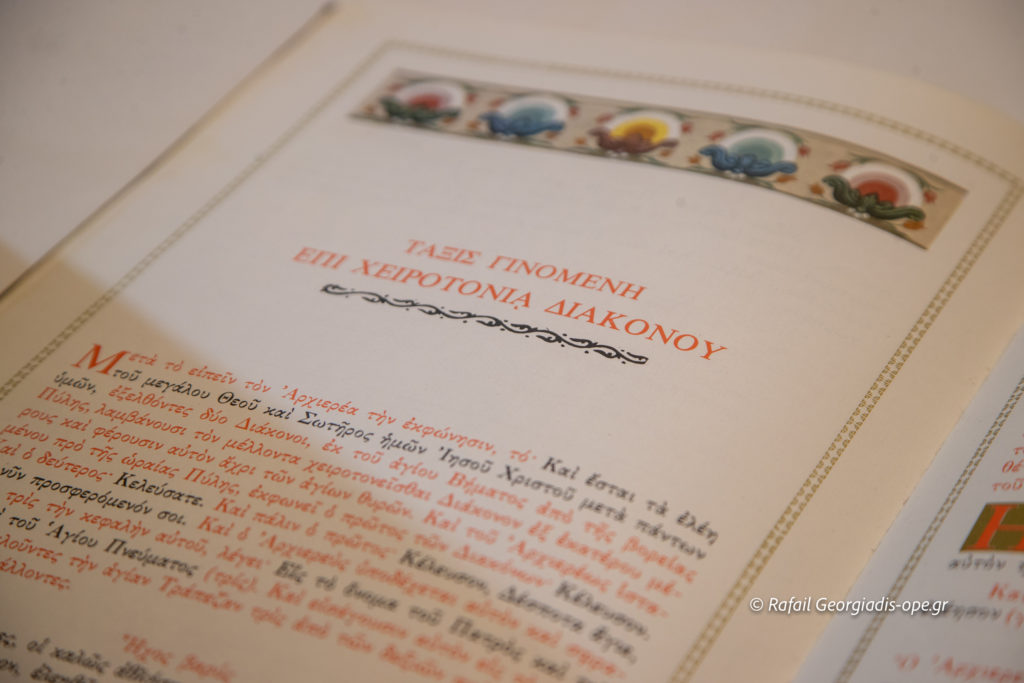 ΤΑΞΙΣ ΓΙΝΟΜΕΝΗ
ΕΠΙ ΧΕΙΡΟΤΟΝΙᾼ ΔΙΑΚΟΝΟΥ
Μετὰ τὸ εἰπεῖν τὸν Ἀρχιερέα τὴν ἐκφώνησιν, τό· Καὶ ἔσται τὰ ἐλέη
τοῦ μεγάλου Θεοῦ καὶ Σωτῆρος ἡμῶν Ἰησοῦ Χριστοῦ μετὰ πάντων
ὑμῶν, ἐξελθόντες δύο Διάκονοι, ἐκ τοῦ ἁγίου Βήματος ἀπὸ τῆς βορείας
Πύλης, λαμβάνουσι τὸν μέλλοντα χειροτονεῖσθαι Διάκονον ἐξ ἑκατέρου μέ-
ρους καὶ φέρουσιν αὐτὸν ἄχρι τῶν ἁγίων θυρῶν. Καὶ τοῦ Ἀρχιερέως ἱστα-
μένου πρὸ τῆς ὡραίας Πύλης, ἐκφωνεῖ ὁ πρῶτος τῶν Διακόνων· Κέλευσον.
αὶ ὁ δεύτερος· Κελεύσατε. Καὶ πάλιν ὁ πρῶτος· Κέλευσον, Δέσποτα ἅγιε,
νῦν προσφερόμενόν σοι. Καὶ ὁ Ἀρχιερεὺς ὑποδέχεται αὐτὸν καὶ σφρα-
τρὶς τὴν κεφαλὴν αὐτοῦ, λέγει· Εἰς τὸ ὄνομα τοῦ Πατρὸς καὶ
τοῦ Ἁγίου Πνεύματος (τρίς). Καὶ εἰσάγουσιν αὐτὸν εἰς
λοῦντες τὴν ἁγίαν Τράπεζαν τρὶς ἀπὸ τῶν δεξιῶν
έλλοντες.
Ἦχος βαρύς
οἱ καλῶς
Η
αὐτὸν
Κα
γ) Ἀρχιερ
© Rafail Georgiadis-ope.gr